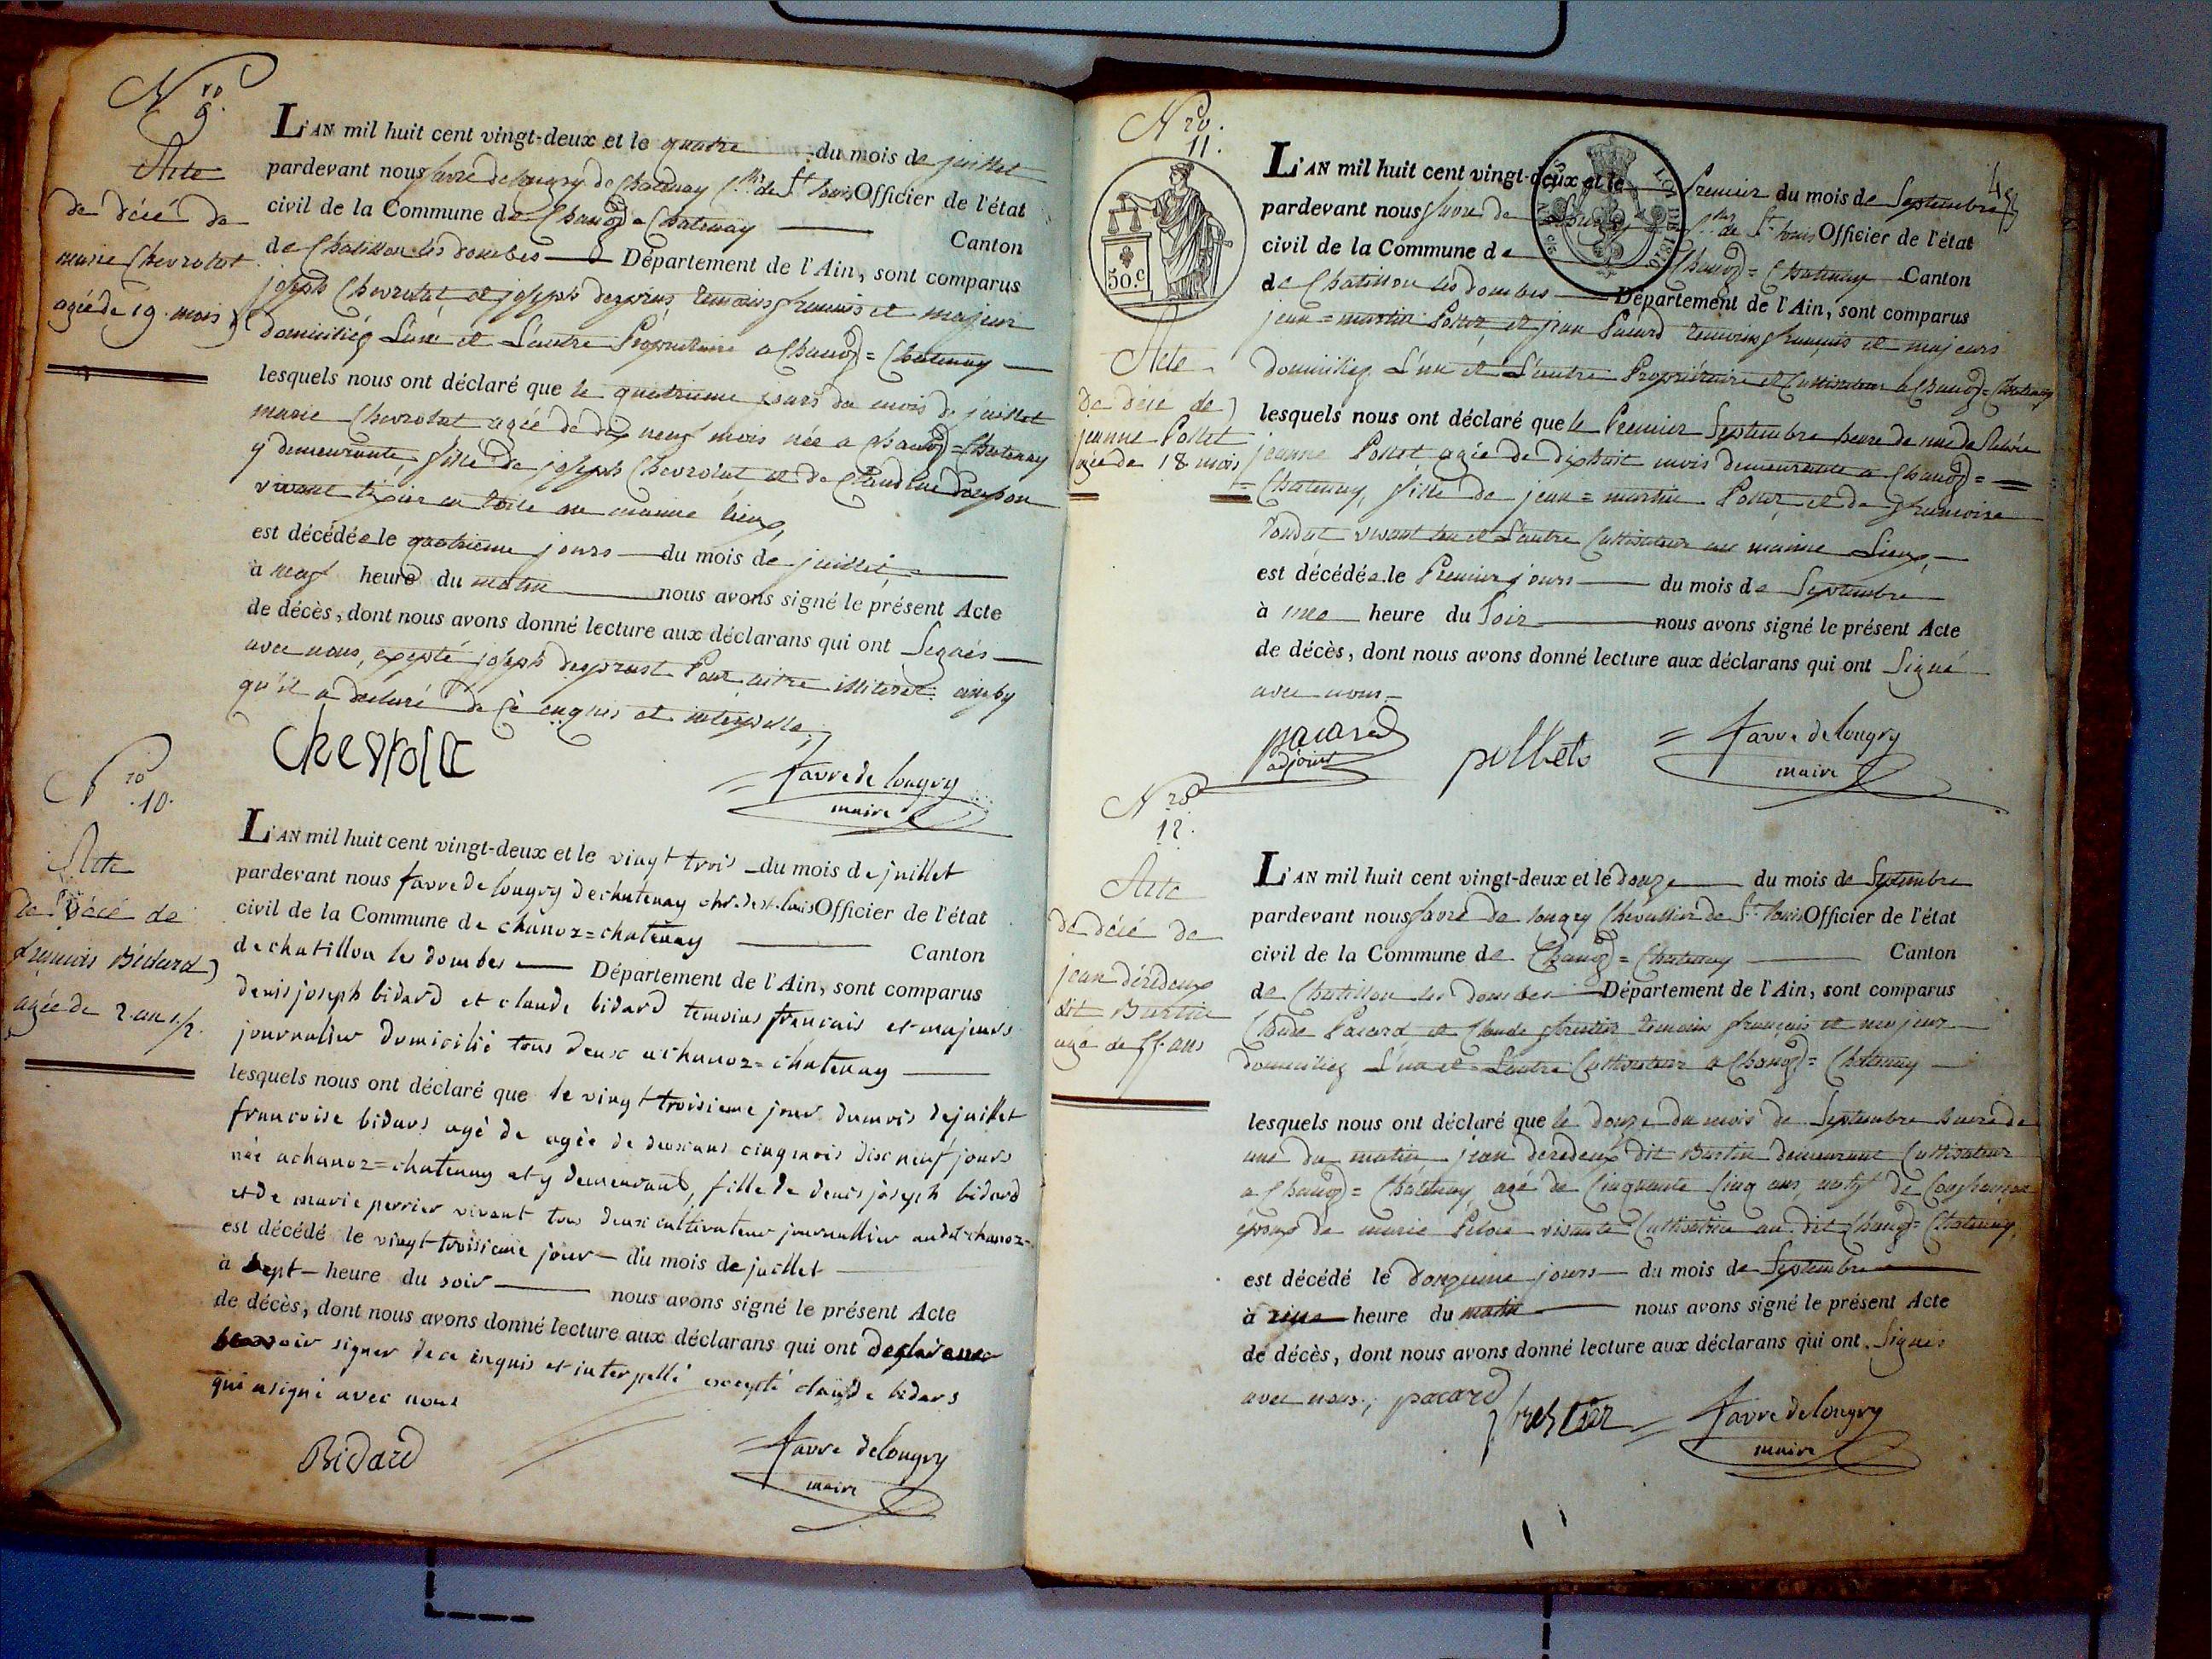 Nro
9.
Acte
de décé de
marie Chevrolat
agée de 19. mois
L'AN mil huit cent vingt-deux et le quatre du mois de juillet
pardevant nous favre de longry de Chatenay Ch.er de St. louis Officier de l'état
civil de la Commune de Chanoz = Chatenay Canton
de Chatillon les dombes Département de l'Ain, sont comparus
joseph Chevrolat et joseph temoins francais et majeur
domiciliés L'un et L'autre Propriétaire a Chanoz = Chatenay
lesquels nous ont déclaré que le quatrieme jours du mois de juillet
marie Chevrolat agée de dix neuf mois née a Chanoz = Chatenay
y demeurante, fille de joseph Chevrolat et de Claudine
vivant tixier en toile au maime lieux,
est décédée le quatrieme jours du mois de juillet
à neuf heure du matin nous avons signé le présent Acte
de décès, dont nous avons donné lecture aux déclarans qui ont Signés
avec nous, exepté joseph Pour aitre illiteret ainsy
qu'il a declaré de ce enquis et interpelle,
Chevrolat
favre de longry
maire
Nro
10.
Acte
de Décé de
françois Bidard
agée de 2. an 1/2.
L'AN mil huit cent vingt-deux et le vingt trois du mois de juillet
pardevant nous favre de longry de chatenay chr. de st. louis Officier de l'état
civil de la Commune de chanoz=chatenay Canton
de chatillon les dombes Département de l'Ain, sont comparus
denis joseph bidard et claude bidard temoins francais et majeurs
journalier domicilié tous deux a chanoz=chatenay
lesquels nous ont déclaré que le vingt troisieme jour du mois de juillet
francoise bidard agé de agée de deux ans cinq mois disc neuf jours
née a chanoz=chatenay et y demeurant, fille de denis joseph bidard
et de marie perrier vivant tous deux cultivateur journallier au dit chanoz-
est décédé le vingt troisieme jour du mois de juillet
à sept heure du soir nous avons signé le présent Acte
de décès, dont nous avons donné lecture aux déclarans qui ont
signer de ce enquis et interpellé excepté claude bidars
qui a signé avec nous
Bidard
favre de longry
maire
Nro.
11.
50.c
Acte
de décé de
jeanne Pollet
agée de 18 mois
L'AN mil huit cent vingt-deux et le Premier du mois de Septembre
pardevant nous favre de longry Ch.er de St. louis Officier de l'état
civil de la Commune de Chanoz = Chatenay Canton
de Chatillon les dombes Département de l'Ain, sont comparus
jean = martin Pollet, et jean Pacard temoins français et majeurs
domiciliés L'un et L'autre Propriétaire et Cultivateur a Chanoz = Chatenay
lesquels nous ont déclaré que le Premier Septembre heure de une de
jeanne Pollet agée de dixhuit mois demeurante a Chanoz =
Chatenay, fille de jean = martin Pollet, et de francoise
vivant lun et L'autre Cultivateur au maime Lieux,
est décédée le Premier jours du mois de Septembre
à une heure du Soir nous avons signé le présent Acte
de décès, dont nous avons donné lecture aux déclarans qui ont Signé
avec nous
pacard
adjoint
pollet
favre de longry
maire
Nro
12.
Acte
de décé de
jean déredeux
dit Burtin
agé de 55 ans
L'AN mil huit cent vingt-deux et le douze du mois de Septembre
pardevant nous favre de longry Chevallier de St. louis Officier de l'état
civil de la Commune de Chanoz = Chatenay Canton
de Chatillon les dombes Département de l'Ain, sont comparus
Claude Pacard et Claude temoin français et majeur
domiciliés L'un et L'autre Cultivateur a Chanoz = Chatenay
lesquels nous ont déclaré que le douze du mois de Septembre heure de
une du matin jean deredeux dit Burtin demeurant Cultivateur
a Chanoz = Chatenay, agé de Cinquante Cinq ans, natif de
époux de marie vivante Cultivatrice au dit Chanoz = Chatenay,
est décédé le douzieme jours du mois de Septembre
à une heure du matin nous avons signé le présent Acte
de décès, dont nous avons donné lecture aux déclarans qui ont Signés
avec nous., pacard
favre de longry
maire